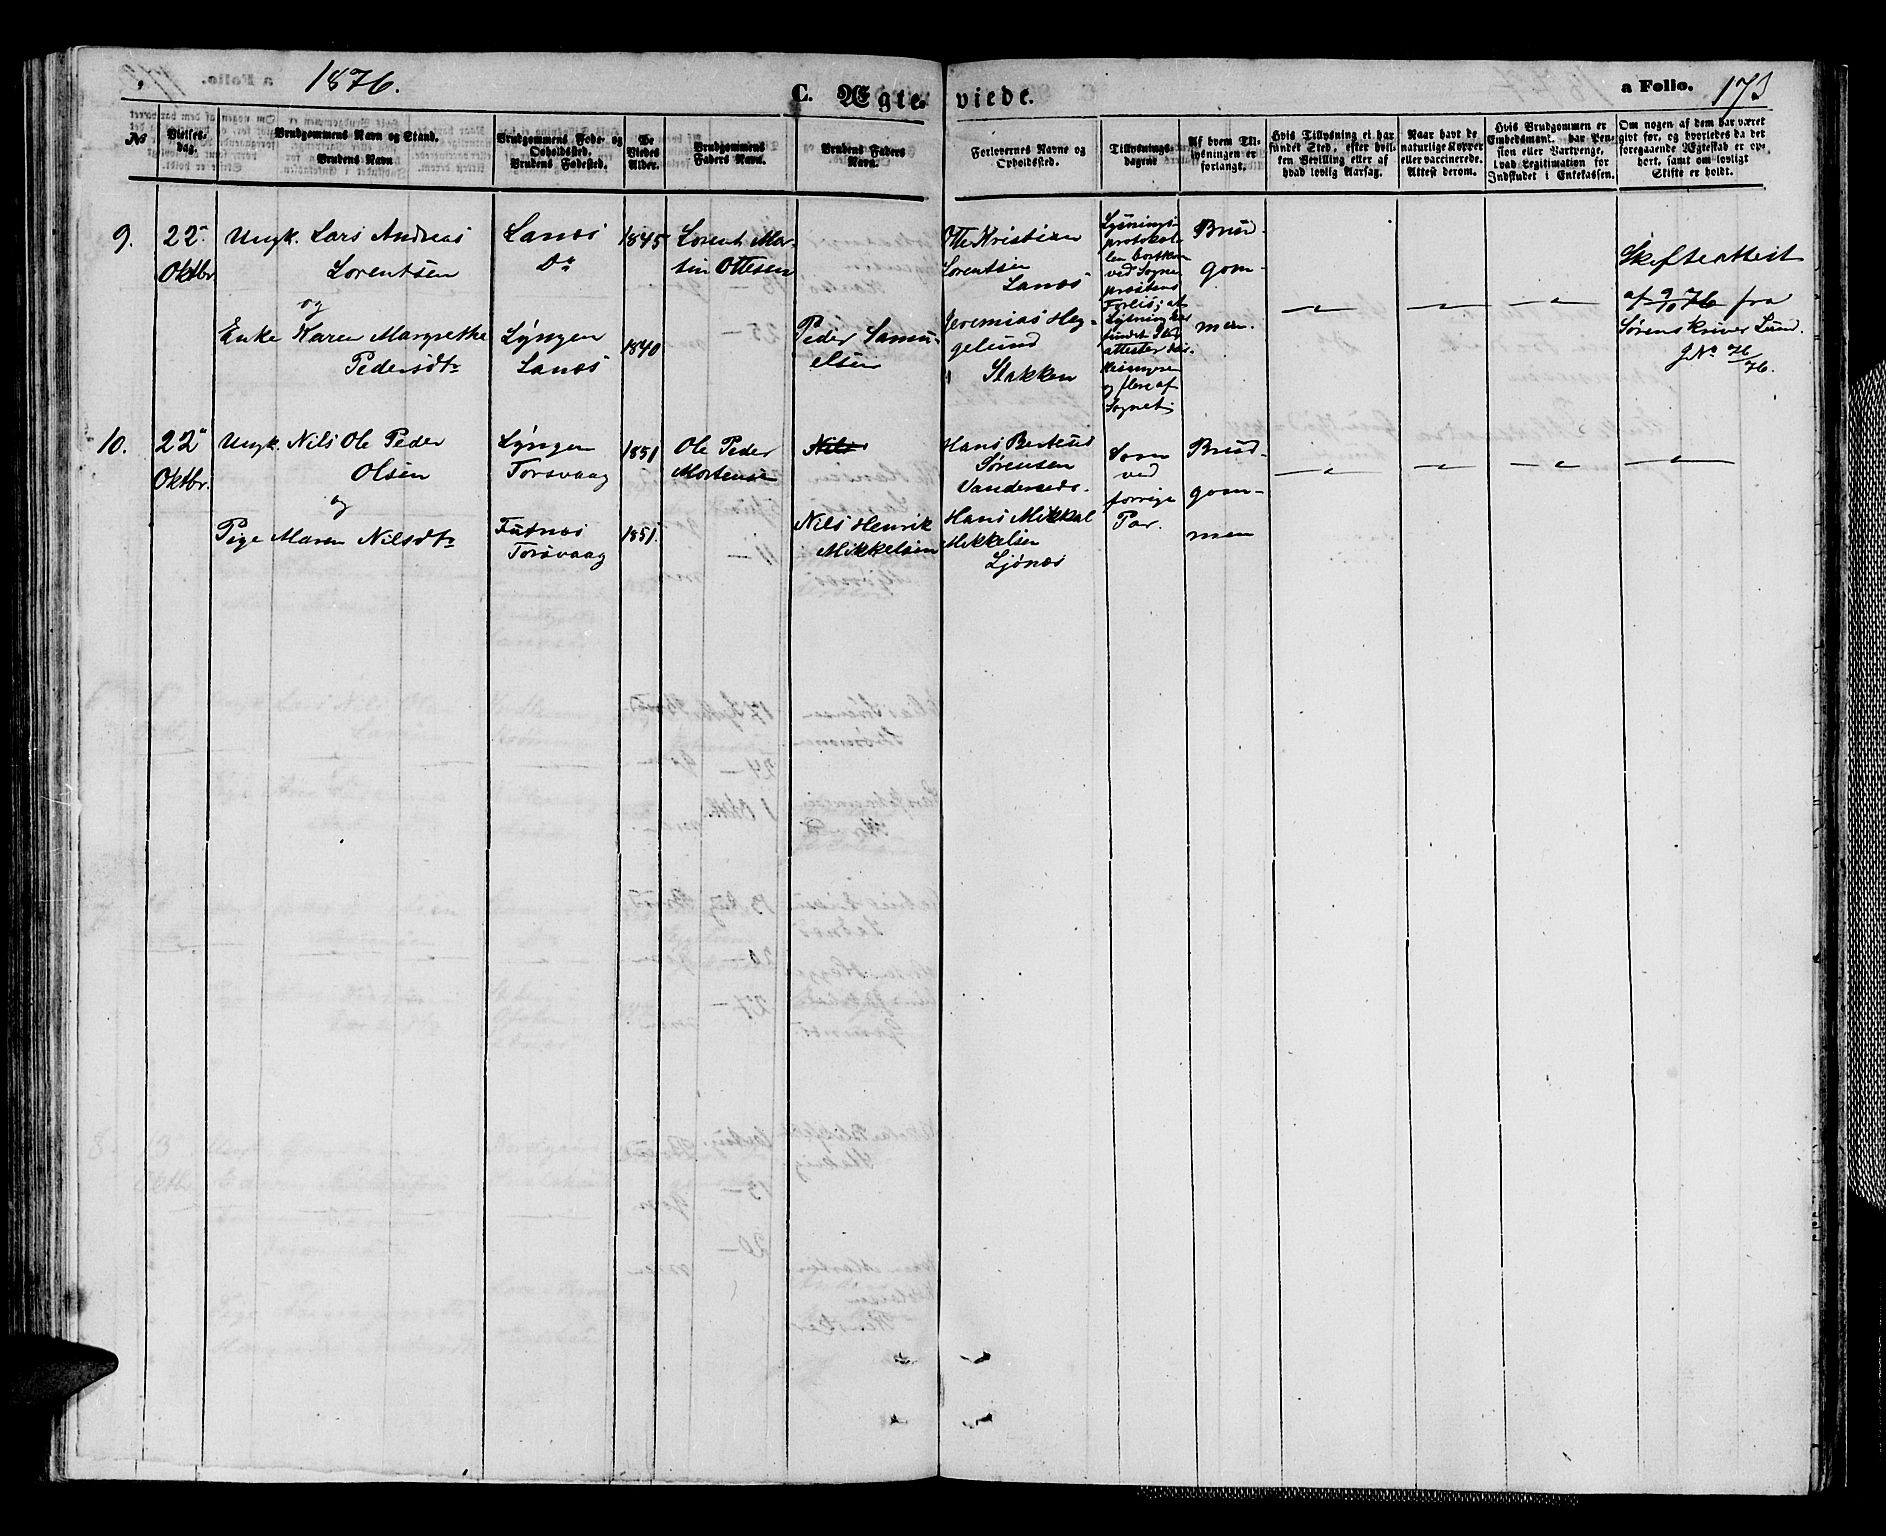 1876.
C. Ægte-
viede.
a Folio. 173
No
Vielses-
dag.
Brudgommens Navn og Stand.
Brudens Navn
Brudgommens Føde- og
Opholdssted.
Brudens Fødested.
De
Viedes
Alder.
Brudgommens
Faders Navn.
Brudens Faders
Navn.
Forlovernes Navne og
Opholdssted.
Tillysnings-
dagene
Af hvem Til-
lysningen er
forlangt.
Hvis Tillysning ei har
fundet Sted, efter hvil-
ken Bevilling eller af
hvad lovlig Aarsag.
Naar havt de
naturlige Kopper
eller vaccinerede.
Attest derom.
Hvis Brudgommen er
Embedsmand, har Pen-
sion eller Vartpenge,
hvad Legitimation for
Indskudet i Enkekassen.
Om nogen af dem har været
gift før, og hvorledes da det
foregaaende Ægteskab er op-
hørt, samt om lovligt
Skifte er holdt.
9.
22
Oktbr
Ungk. Lars Andreas
Lorentsen
og
Enke Karen Margrethe
Pedersdtr
Lanæs
Do
Lyngen
Lanæs
1845
1840
Lorents Mar-
tin Ottesen
Peder Samu-
elsen
Otte Kristian
Lorentsen
Lanæs
Jeremias Hag-
gelund
Stakken
Lysnings
protokol-
len bortkom
ved Sogne
præstens
Forlis; at
Lysning har
fundet Sted
attester
og flere af
Sognet.
Brud-
gom-
men.
Skifteattest
af 9/10 76 fra
Sørenskriver Lund.
J No 76/76.
10.
22
Oktbr.
Ungk. Nils Ole Peder
Olsen
og
Pige Maren Nilsdtr
Lyngen
Torsvaag
Futnæs
Torsvaag
1851
1851.
Ole Peder
Mortensen
Nils
Nils Henrik
Mikkelsen
Hans Berteus
Sørensen
Vanderseds.
Hans Mikkal
Mikkelsen
Ljønæs
Som
ved
forrige
Par.
Brud-
gom-
men